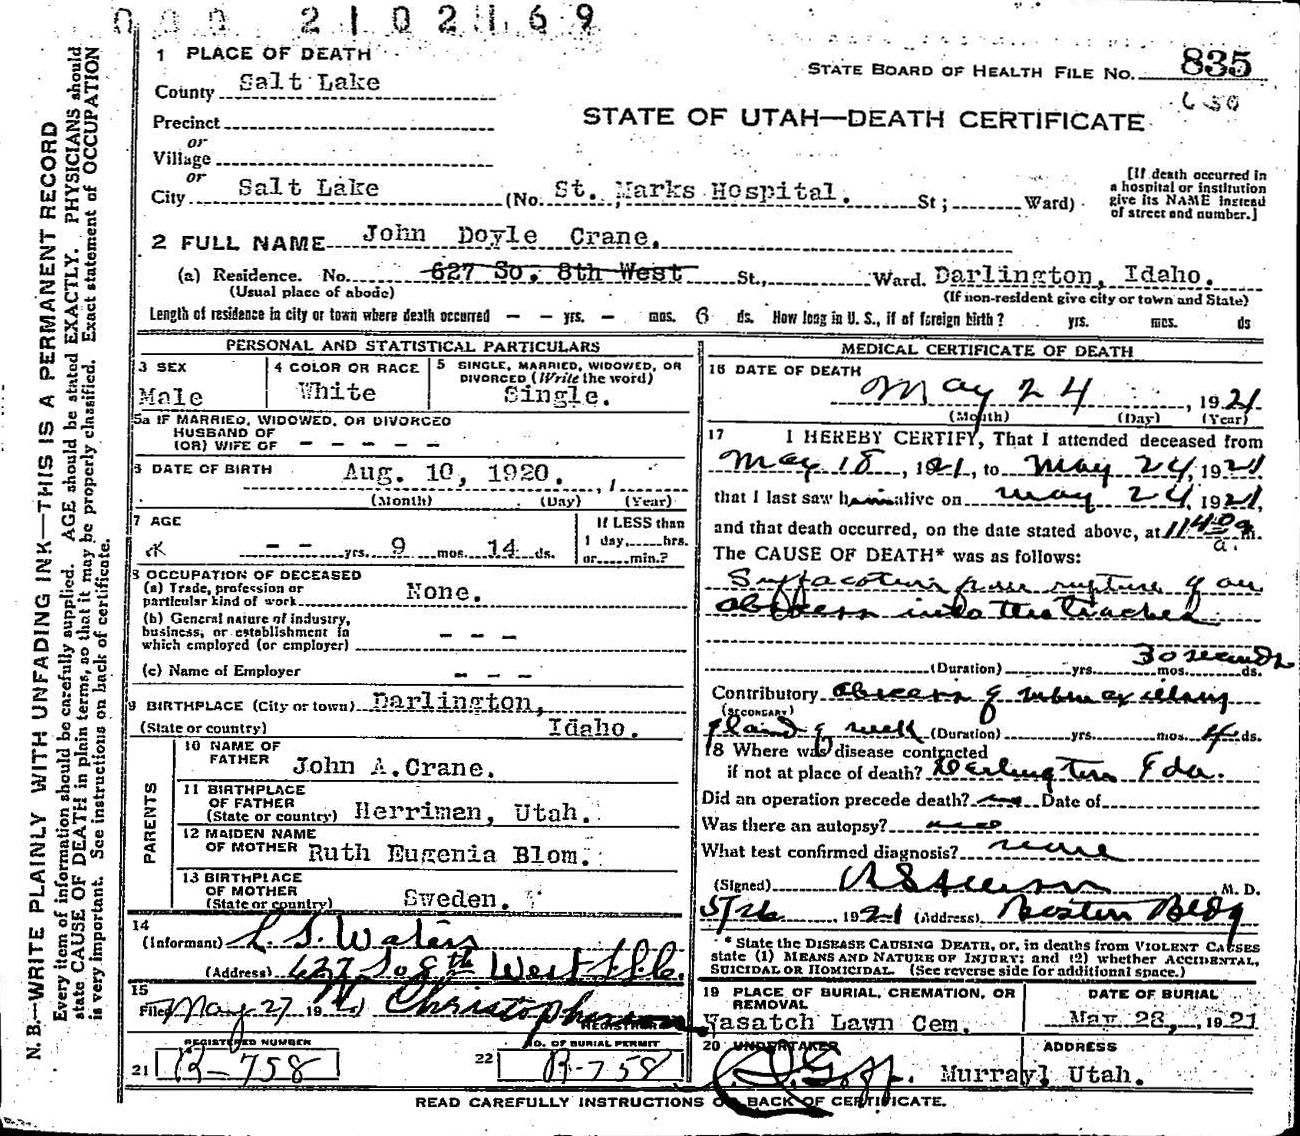 000 2102169
1 PLACE OF DEATH
STATE BOARD OF HEALTH FILE No. 835
County Salt Lake
650
STATE OF UTAH—DEATH CERTIFICATE
Precinct
or
Village
or
City Salt Lake (No. St. Marks Hospital. St ; Ward)
[If death occurred in
a hospital or institution
give its NAME instead
of street and number.]
2 FULL NAME John Doyle Crane.
(a) Residence. No. 627 So. 8th West St., Ward. Darlington, Idaho.
(Usual place of abode) (If non-resident give city or town and State)
Length of residence in city or town where death occurred - - yrs. - mos. 6 ds. How long in U. S., if of foreign birth? yrs. mos. ds
PERSONAL AND STATISTICAL PARTICULARS
3 SEX
Male
4 COLOR OR RACE
White
5 SINGLE, MARRIED, WIDOWED, OR
DIVORCED (Write the word)
Single.
5a IF MARRIED, WIDOWED, OR DIVORCED
HUSBAND OF
(OR) WIFE OF - - - - -
6 DATE OF BIRTH Aug. 10, 1920.
(Month) (Day) (Year)
7 AGE
- - yrs. 9 mos. 14 ds.
If LESS than
1 day, hrs.
or min.?
8 OCCUPATION OF DECEASED
(a) Trade, profession or
particular kind of work None.
(b) General nature of industry,
business, or establishment in
which employed (or employer) - - -
(c) Name of Employer - - -
9 BIRTHPLACE (City or town) Darlington,
(State or country) Idaho.
PARENTS
10 NAME OF
FATHER John A.Crane.
11 BIRTHPLACE
OF FATHER
(State or country) Herriman, Utah.
12 MAIDEN NAME
OF MOTHER Ruth Eugenia Blom.
13 BIRTHPLACE
OF MOTHER
(State or country) Sweden.
14
(Informant) L. S. Waters
(Address) 627 So 8th West S.L.C.
15
Filed May 27 1921 Christopherson
REGISTRAR
REGISTERED NUMBER
21 R-758
NO. OF BURIAL PERMIT
22 R-758
MEDICAL CERTIFICATE OF DEATH
16 DATE OF DEATH
May 24, 1921
(Month) (Day) (Year)
17 I HEREBY CERTIFY, That I attended deceased from
May 18, 1921, to May 24, 1921
that I last saw him alive on May 24, 1921,
and that death occurred, on the date stated above, at 11 40 a. m.
a.
The CAUSE OF DEATH* was as follows:
Suffocation from rupture of an
abscess into the trachea
(Duration) yrs. mos. 30 seconds ds.
Contributory abscess of submaxillary
(SECONDARY)
gland of neck (Duration) yrs. mos. 4 ds.
18 Where was disease contracted
if not at place of death? Darlington Ida.
Did an operation precede death? no Date of
Was there an autopsy? no
What test confirmed diagnosis? none
(Signed) M. D.
5/26, 1921 (Address) Boston Bldg
* State the DISEASE CAUSING DEATH, or, in deaths from VIOLENT CAUSES
state (1) MEANS AND NATURE OF INJURY; and (2) whether ACCIDENTAL,
SUICIDAL OR HOMICIDAL. (See reverse side for additional space.)
19 PLACE OF BURIAL, CREMATION, OR
REMOVAL
Wasatch Lawn Cem.
DATE OF BURIAL
May 28, 1921
20 UNDERTAKER
ADDRESS
Murray, Utah.
READ CAREFULLY INSTRUCTIONS ON BACK OF CERTIFICATE.
N. B.—WRITE PLAINLY WITH UNFADING INK—THIS IS A PERMANENT RECORD
Every item of information should be carefully supplied. AGE should be stated EXACTLY. PHYSICIANS should
state CAUSE OF DEATH in plain terms, so that it may be properly classified. Exact statement of OCCUPATION
is very important. See instructions on back of certificate.